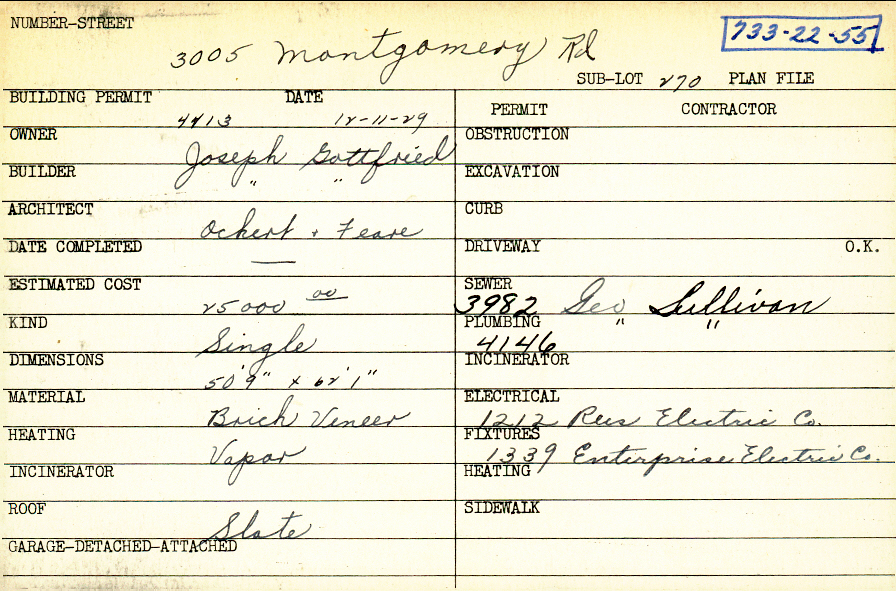 NUMBER-STREET
733-22-55
3005 Montgomery Rd
SUB-LOT 270 PLAN FILE
BUILDING PERMIT DATE
4413 12-11-29
PERMIT CONTRACTOR
OWNER Joseph Gottfried
OBSTRUCTION
BUILDER " "
EXCAVATION
ARCHITECT Ockert + Feare
CURB
DATE COMPLETED —
DRIVEWAY O.K.
ESTIMATED COST 25000 00
SEWER 3982 Geo Sullivan
KIND Single
PLUMBING 4146 " "
DIMENSIONS 50'9" x 62'1"
INCINERATOR
MATERIAL Brick Veneer
ELECTRICAL 1212 Electric Co.
HEATING Vapor
FIXTURES 1339 Enterprise Electric Co.
INCINERATOR
HEATING
ROOF Slate
SIDEWALK
GARAGE-DETACHED-ATTACHED